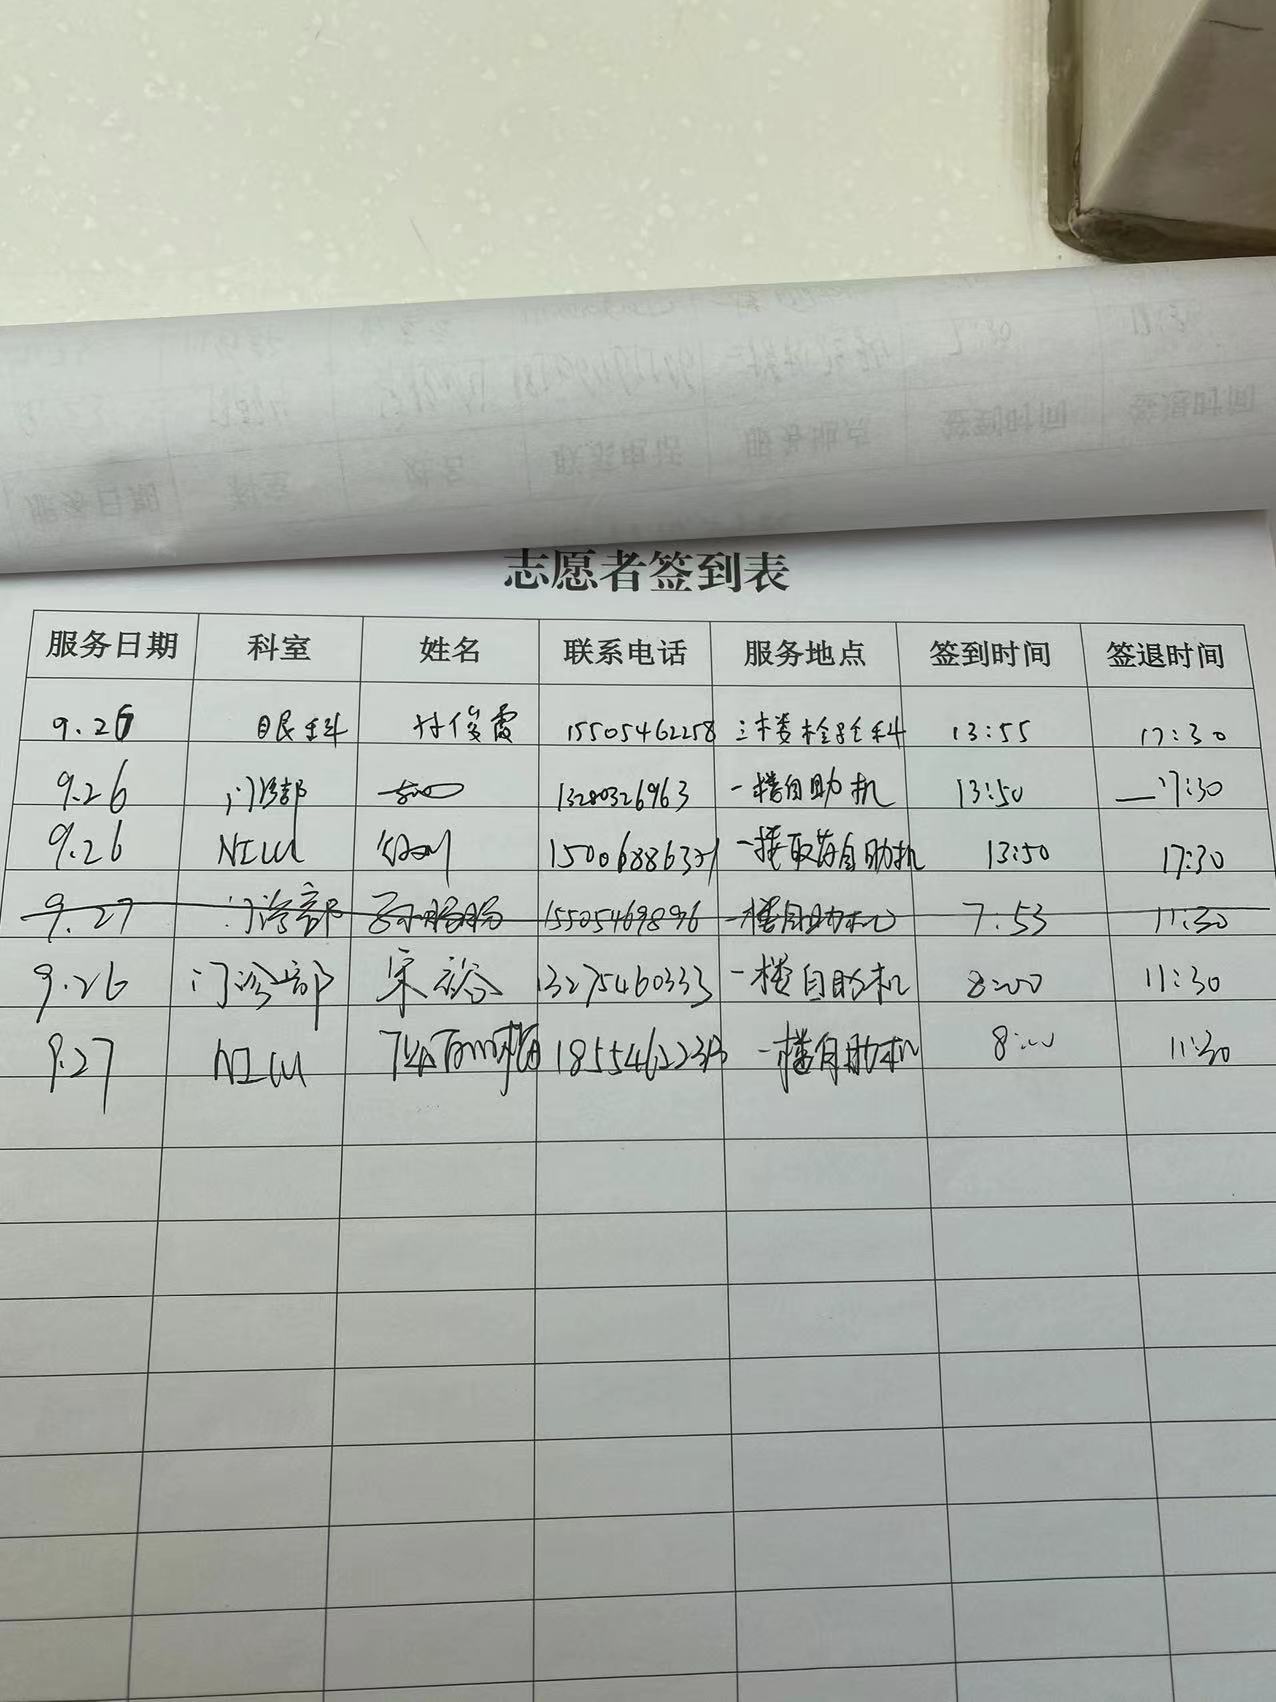 志愿者签到表
服务日期 科室 姓名 联系电话 服务地点 签到时间 签退时间
9.26 眼科 付俊霞 15505462258 三楼检验科 13:55 17:30
9.26 门诊部 13280326963 一楼自助机 13:50 17:30
9.26 NICU 一楼取药自助机 13:50 17:30
9.27 门诊部 15505469896 一楼自助机 7:53 11:30
9.26 门诊部 宋裕 13275460333 一楼自助机 8:00 11:30
9.27 NICU 一楼自助机 8:00 11:30